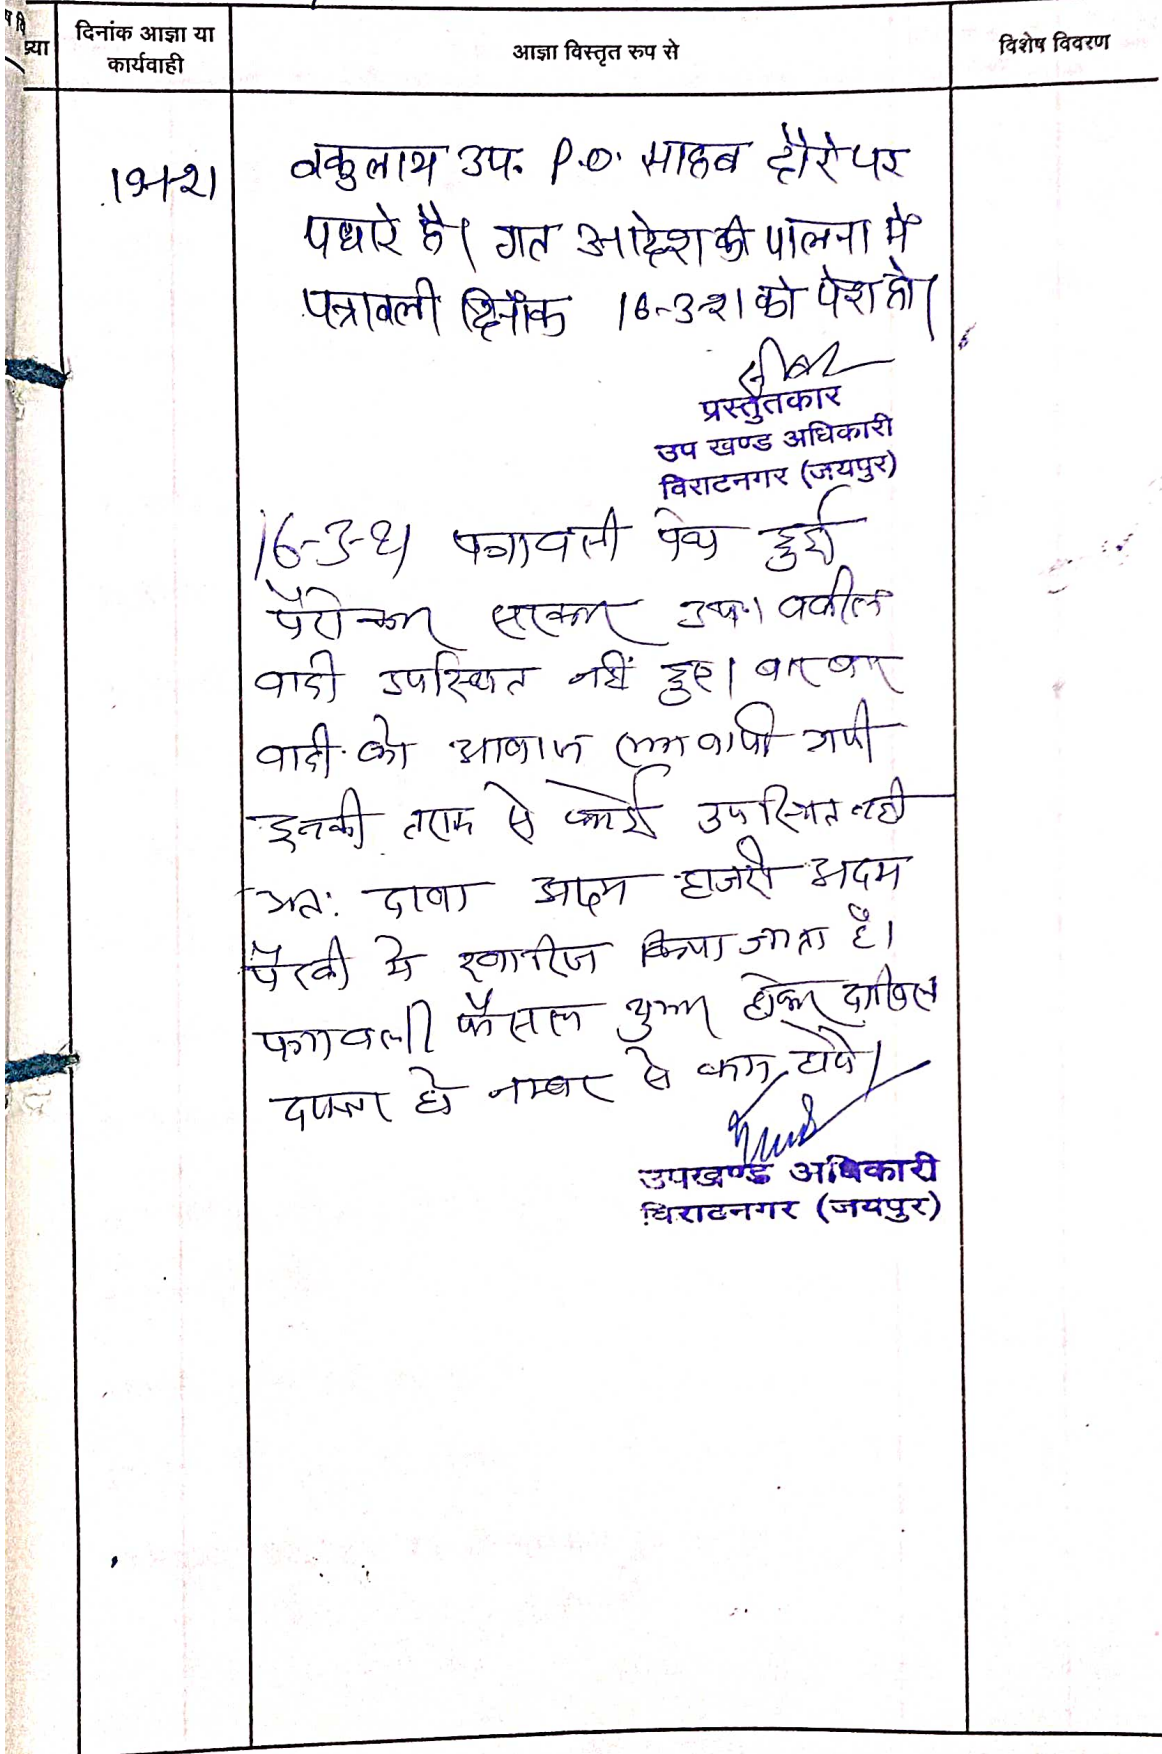 दिनांक आज्ञा या
कार्यवाही
आज्ञा विस्तृत रुप से
विशेष विवरण
वकुलाय उप. P.O. साहब दौरे पर
पधारे है। गत आदेश की पालना में
पत्रावली दिनाँक 16-3-21 को पेश हो।
प्रस्तुतकार
उप खण्ड अधिकारी
विराटनगर (जयपुर)
16-3-21 पत्रावली पेश हुई
पैरोकार सरकार उप। वकील
वादी उपस्थित नहीं हुए। बार बार
वादी को आवाज लगवायी गयी
इनकी तरफ से कोई उपस्थित नही
अतः दावा अदम हाजरी अदम
पैरवी मे खारीज किया जाता है।
पत्रावली फैसल शुमार होकर दाखिल
दफ्तर हो नम्बर से कम होवे।
उपखण्ड अधिकारी
विराटनगर (जयपुर)